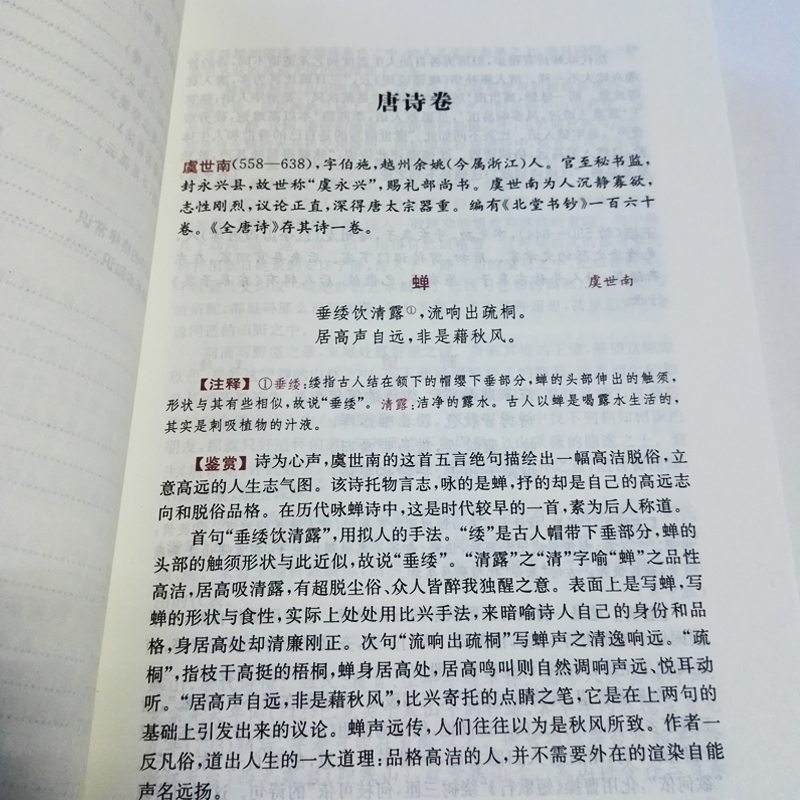 唐诗卷
虞世南(558—638),字伯施,越州余姚(今属浙江)人。官至秘书监,
封永兴县,故世称“虞永兴”,赐礼部尚书。虞世南为人沉静寡欲,
志性刚烈,议论正直,深得唐太宗器重。编有《北堂书钞》一百六十
卷。《全唐诗》存其诗一卷。
蝉 虞世南
垂緌饮清露①,流响出疏桐。
居高声自远,非是藉秋风。
【注释】①垂緌:緌指古人结在颔下的帽缨下垂部分,蝉的头部伸出的触须,
形状与其有些相似,故说“垂緌”。清露:洁净的露水。古人以蝉是喝露水生活的,
其实是刺吸植物的汁液。
【鉴赏】诗为心声,虞世南的这首五言绝句描绘出一幅高洁脱俗,立
意高远的人生志气图。该诗托物言志,咏的是蝉,抒的却是自己的高远志
向和脱俗品格。在历代咏蝉诗中,这是时代较早的一首,素为后人称道。
首句“垂緌饮清露”,用拟人的手法。“緌”是古人帽带下垂部分,蝉的
头部的触须形状与此近似,故说“垂緌”。“清露”之“清”字喻“蝉”之品性
高洁,居高吸清露,有超脱尘俗、众人皆醉我独醒之意。表面上是写蝉,写
蝉的形状与食性,实际上处处用比兴手法,来暗喻诗人自己的身份和品
格,身居高处却清廉刚正。次句“流响出疏桐”写蝉声之清逸响远。“疏
桐”,指枝干高挺的梧桐,蝉身居高处,居高鸣叫则自然调响声远、悦耳动
听。“居高声自远,非是藉秋风”,比兴寄托的点睛之笔,它是在上两句的
基础上引发出来的议论。蝉声远传,人们往往以为是秋风所致。作者一
反凡俗,道出人生的一大道理:品格高洁的人,并不需要外在的渲染自能
声名远扬。